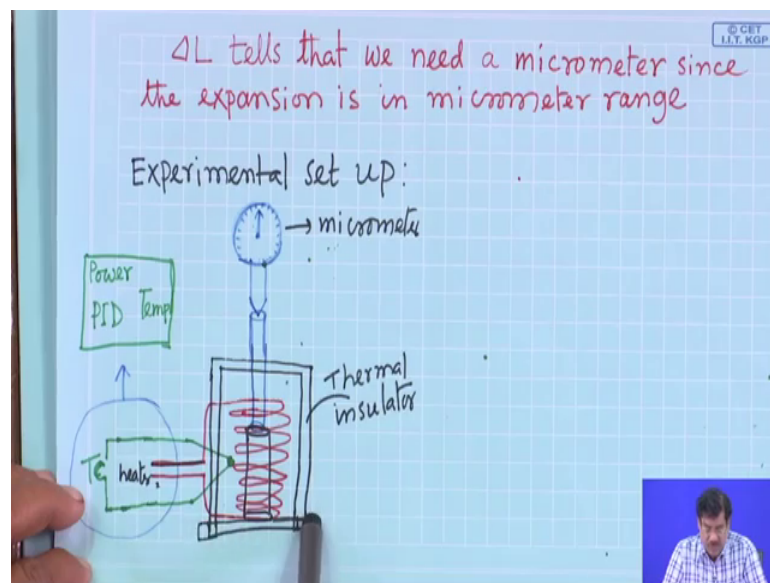 © CET
I.I.T. KGP
ΔL tells that we need a micrometer since
the expansion is in micrometer range
Experimental set up:
→ micromete
Power
PID Temp
Thermal
insulator
TC heater